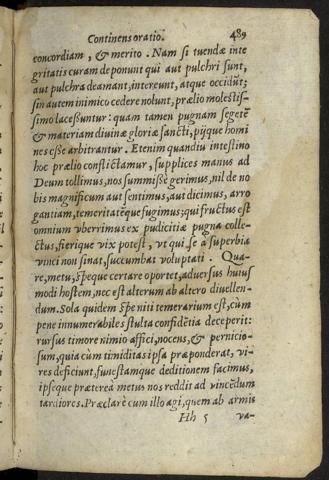 Continens oratio. 489
concordiam, & merito. Nam si tuendæ inte
gritatis curam deponunt qui aut pulchri sunt,
aut pulchra deamant, intereunt, atque occidũt;
sin autem inimico cedere nolunt, prælio molestis-
simo lacessuntur: quam tamen pugnam segetẽ
& materiam diuinæ gloriæ sancti, pijque homi
nes esse arbitrantur. Etenim quandiu intestino
hoc prælio conflictamur, supplices manus ad
Deum tollimus, nos summissè gerimus, nil de no
bis magnificum aut sentimus, aut dicimus, arro
gantiam, temeritatẽque fugimus; qui fructus est
omnium vberrimus ex pudicitiæ pugna colle-
ctus, fierique vix potest, vt qui se à superbia
vinci non sinat, succumbat voluptati. Qua-
re, metu, spéque certare oportet, aduersus huius
modi hostem, nec est alterum ab altero diuellen-
dum. Sola quidem spe niti temerarium est, cùm
pene innumerabiles stulta confidẽtia deceperit:
rursus timore nimio affici, nocens, & pernicio-
sum, quia cùm timiditas ipsa præponderat, vi-
res deficiunt, funestamque deditionem facimus,
ipseque præterea metus nos reddit ad vincẽdum
tardiores. Præclarè cum illo agi, quem ab armis
Hh 5 va-